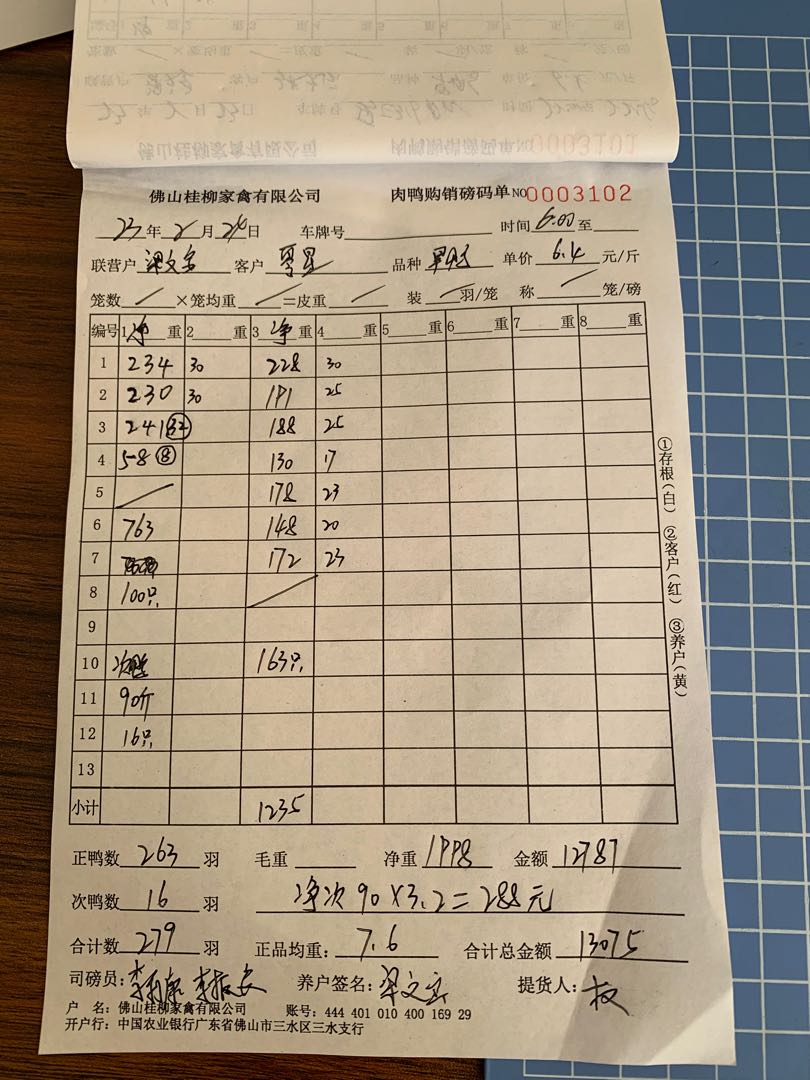 佛山桂柳家禽有限公司 肉鸭购销磅码单 NO 0003101
佛山桂柳家禽有限公司 肉鸭购销磅码单 NO 0003102
23 年 2 月 24 日 车牌号 时间 6.00 至
联营户 梁文宏 客户 品种 单价 6.4 元/斤
笼数 / ×笼均重 / =皮重 / 装 / 羽/笼 称 / 笼/磅
编号 1 净 重 2 重 3 净 重 4 重 5 重 6 重 7 重 8 重
1 234 30 228 30
2 230 30 191 25
3 241 32 188 25
4 58 ⑧ 130 17
5 / 178 23
6 763 148 20
7 172 23
8 100只 /
9
10 163只
11 90斤
12 16只
13
小计 1235
正鸭数 263 羽 毛重 净重 1998 金额 12787
次鸭数 16 羽 净次 90×3.2=288元
合计数 279 羽 正品均重: 7.6 合计总金额 13075
司磅员: 养户签名: 梁文宏 提货人:
户 名: 佛山桂柳家禽有限公司 账号: 444 401 010 400 169 29
开户行: 中国农业银行广东省佛山市三水区三水支行
①存根(白) ②客户(红) ③养户(黄)